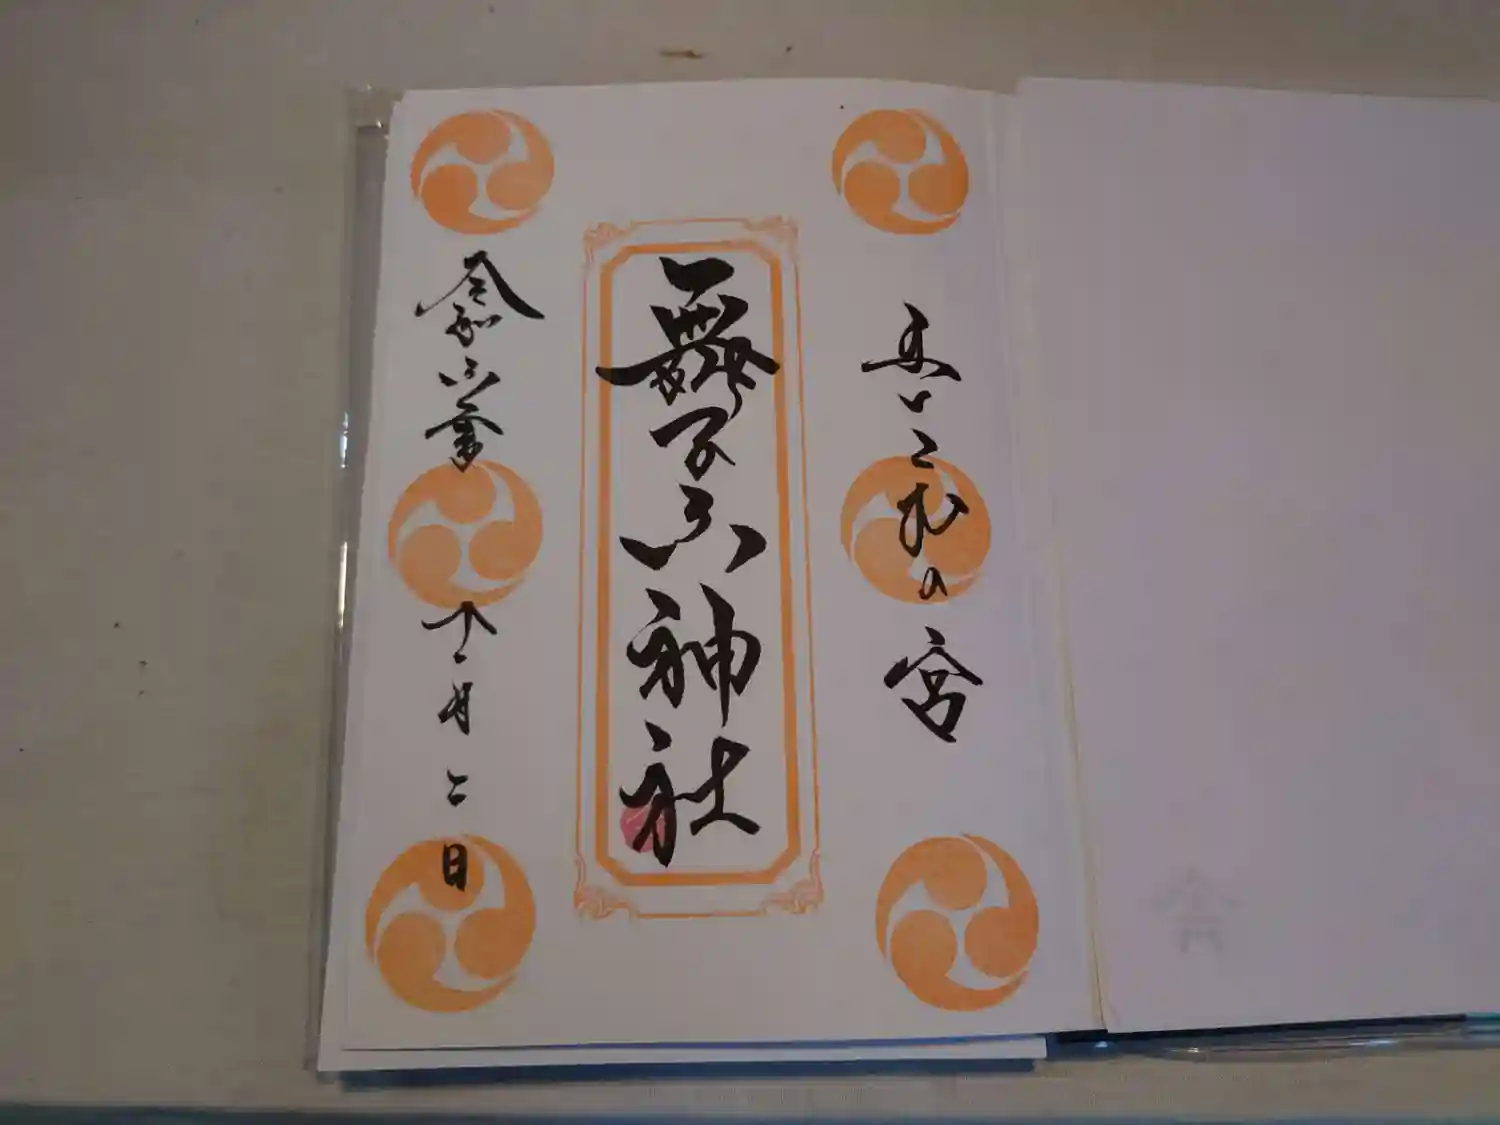 まいこむの宮
舞子六神社
令和六年十一月二日